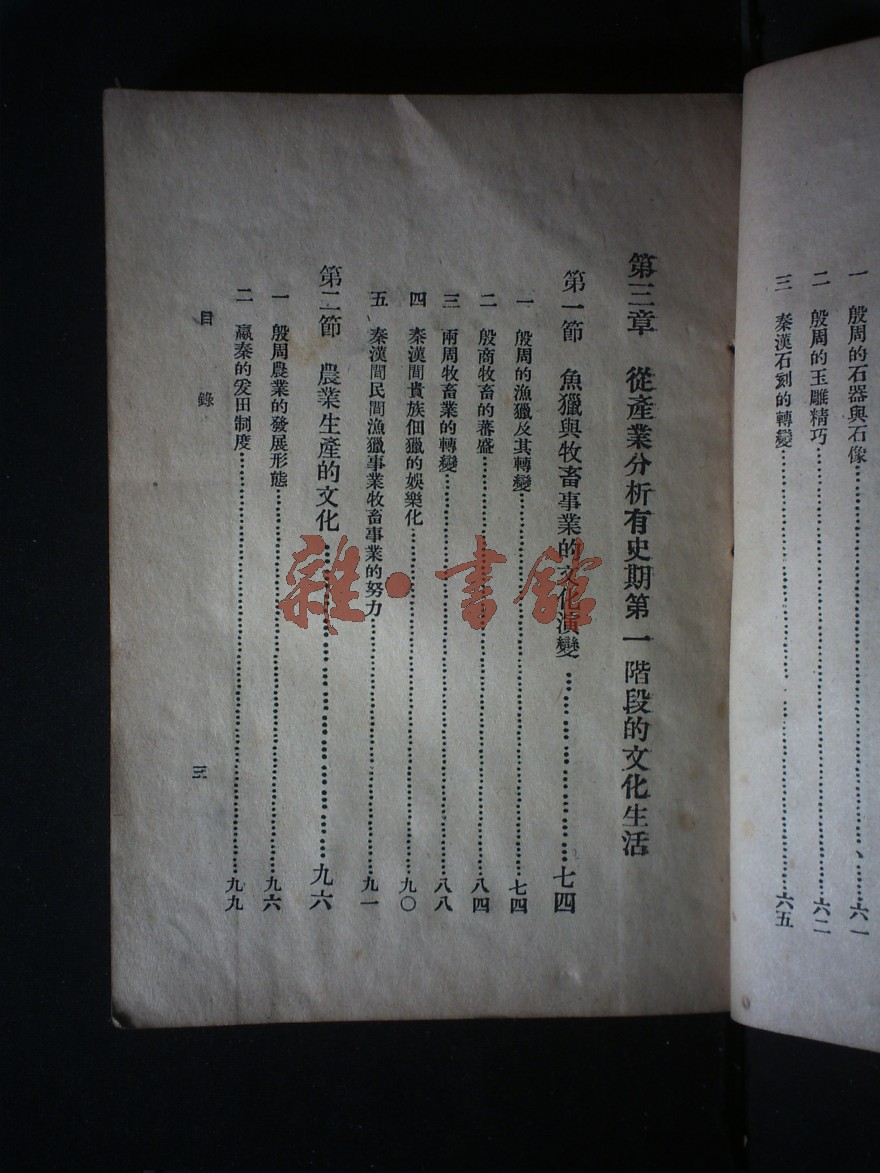 一 殷周的石器與石像……………………、……六一
二 殷周的玉雕精巧……………………六二
三 秦漢石刻的轉變……………………六五
第三章 從產業分析有史期第一階段的文化生活
第一節 魚獵與牧畜事業的文化演變……………………七四
一 殷周的漁獵及其轉變……………………七四
二 殷商牧畜的蕃盛……………………八四
三 兩周牧畜業的轉變……………………八八
四 秦漢間貴族佃獵的娛樂化……………………九〇
五 秦漢間民間漁獵事業牧畜事業的努力……………………九一
第二節 農業生產的文化……………………九六
一 殷周農業的發展形態……………………九六
二 嬴秦的爰田制度……………………九九
目錄
三
雜·書館